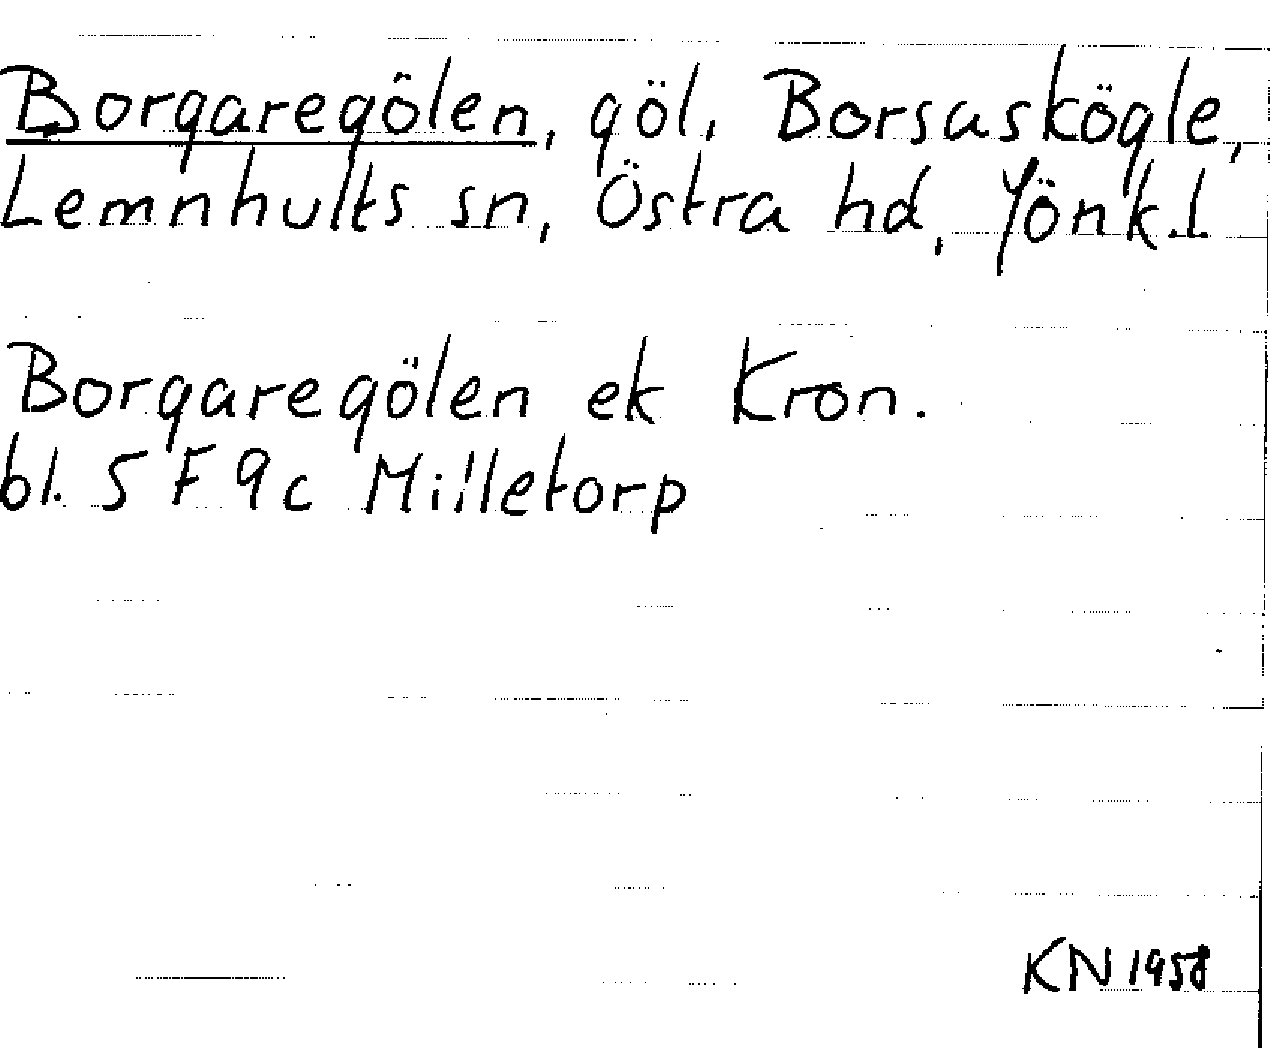 Borgaregölen, göl, Borsaskögle,
Lemnhults sn, Östra hd, Jönk.l.
Borgaregölen ek Kron.
bl. 5 F 9c Milletorp
KN 1958